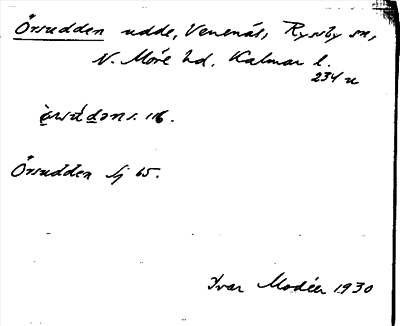 Örsudden udde, Venenäs, Ryssby sn,
N. Möre hd. Kalmar l.
234 u
Örsudden sj 65.
Ivar Modéer 1930